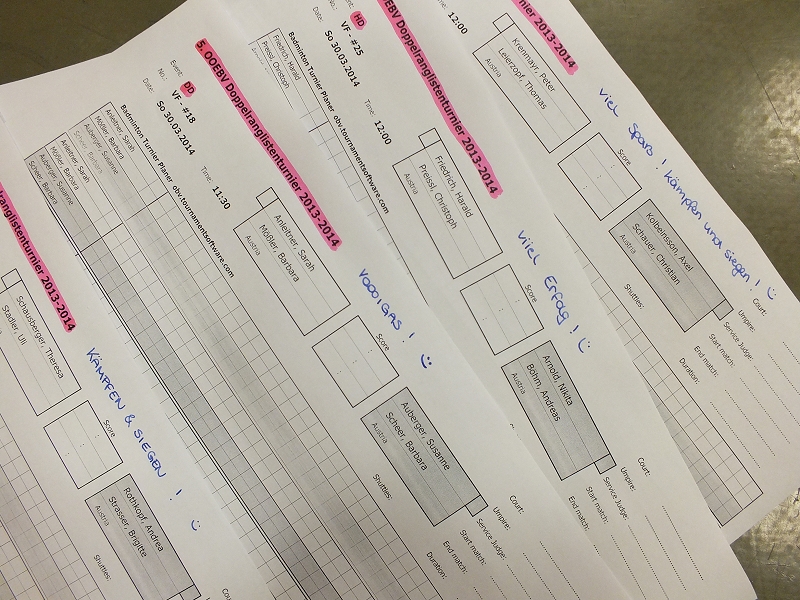 ranglistenturnier 2013-2014
Schausberger, Theresa
Stadler, Ulli
KÄMPFEN & SIEGEN ! :)
Score
Rothkopf, Andrea
Strasser, Brigitte
Austria
Shuttles:
5. OOEBV Doppelranglistenturnier 2013-2014
Event: DD
No.: VF - #18
Date: So 30.03.2014
Time: 11:30
Badminton Turnier Planer obv.tournamentsoftware.com
Anleitner, Sarah
Mößler, Barbara
Auberger, Susanne
Scheer, Barbara
Anleitner, Sarah
Mößler, Barbara
Auberger, Susanne
Scheer, Barbara
Anleitner, Sarah
Mößler, Barbara
Austria
VOOOIGAS ! :)
Score
Auberger, Susanne
Scheer, Barbara
Austria
Shuttles:
Court:
Umpire:
Service Judge:
Start match:
End match:
Duration:
OEBV Doppelranglistenturnier 2013-2014
HD
VF - #25
Date: So 30.03.2014
Time: 12:00
Badminton Turnier Planer obv.tournamentsoftware.com
Friedrich, Harald
Preissl, Christoph
Friedrich, Harald
Preissl, Christoph
Austria
viel Erfolg ! :)
Score
Arnold, Nikita
Böhm, Andreas
Austria
Shuttles:
Court:
Umpire:
Service Judge:
Start match:
End match:
12:00
2013-2014
Krenmayr, Peter
Leierzopf, Thomas
Austria
viel Spass ! kämpfen und siegen ! :)
Score
Kolbeinsson, Axel
Schauer, Christian
Austria
Shuttles:
Court:
Umpire:
Service Judge:
Start match:
End match:
Duration: